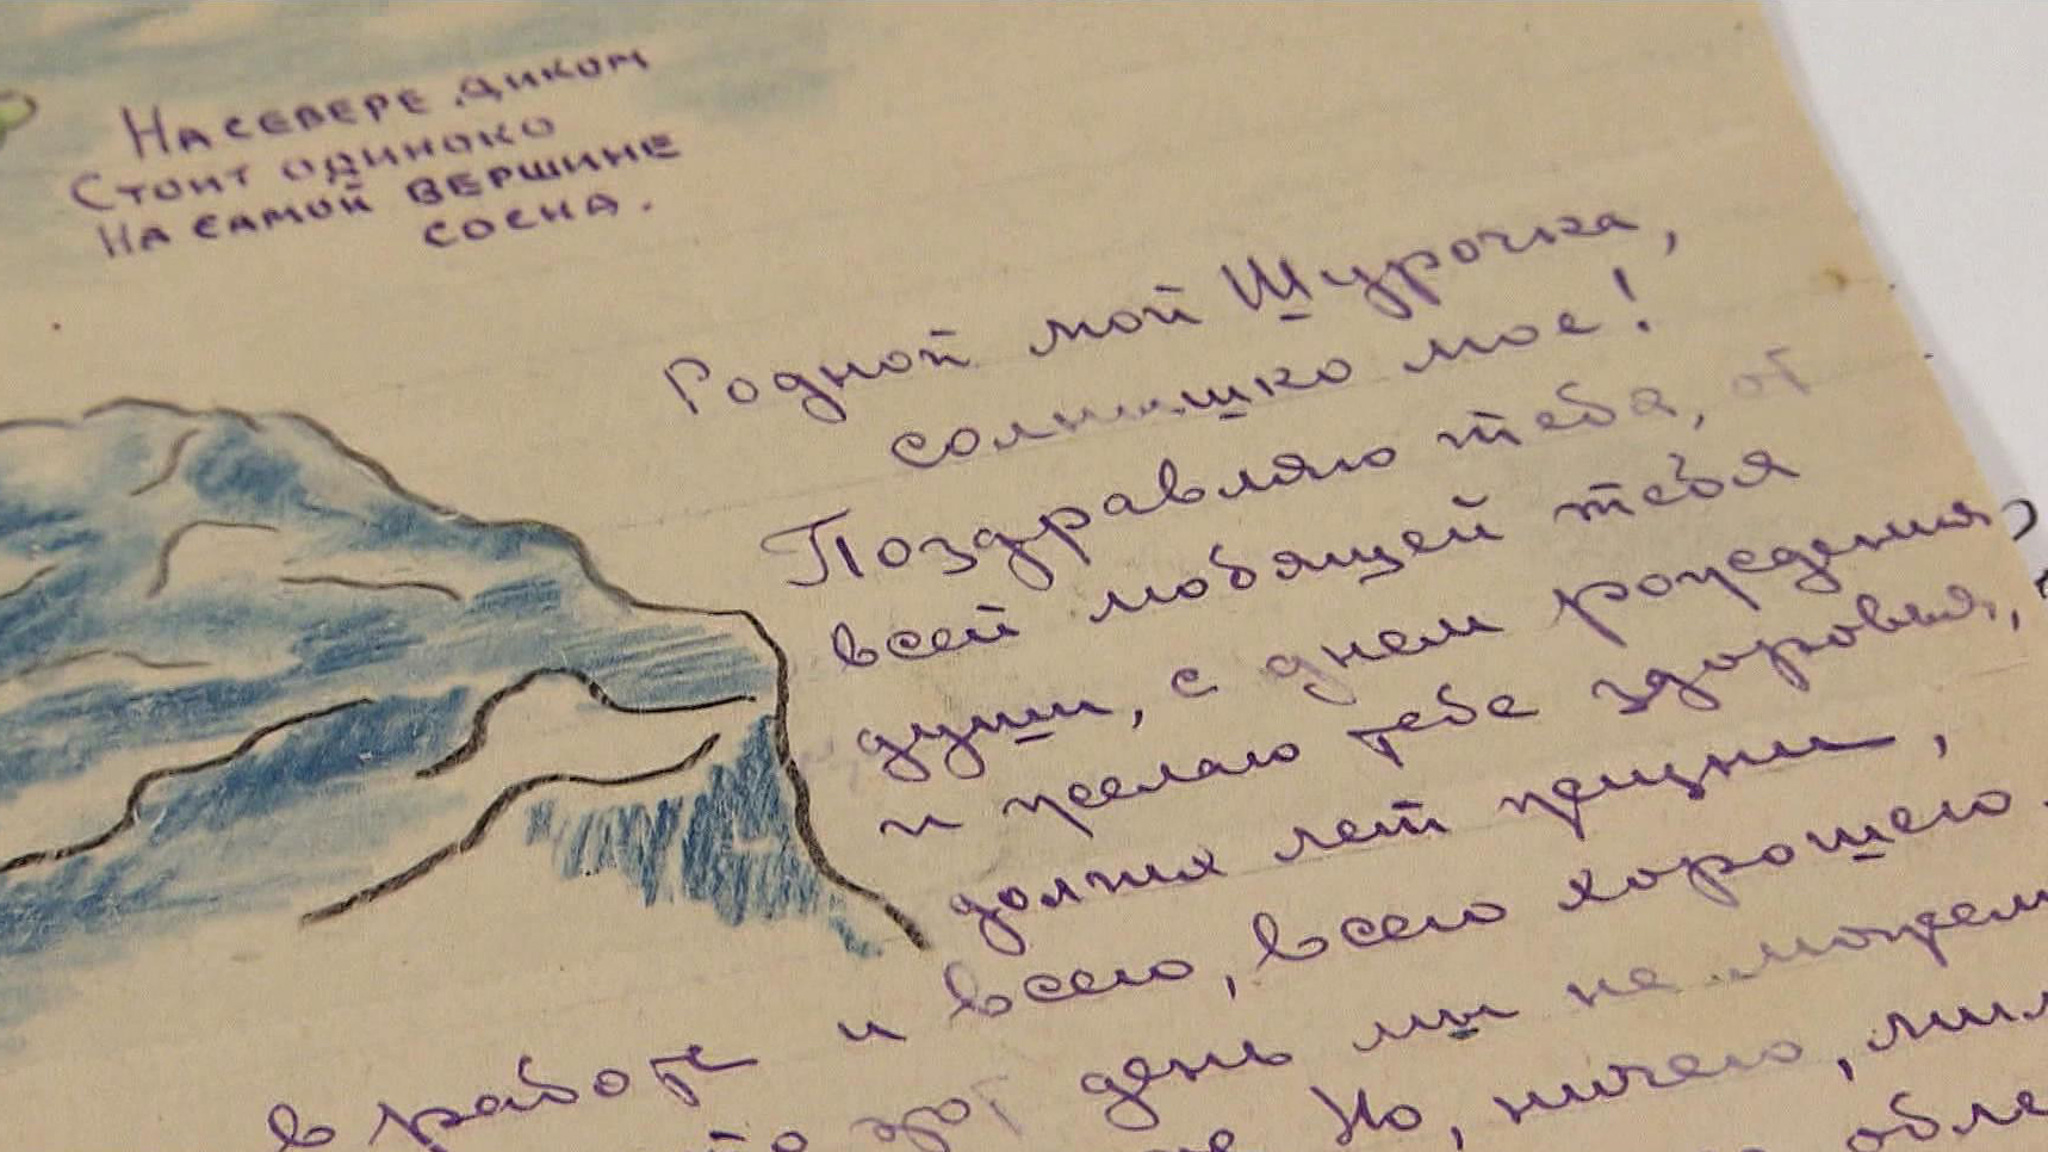 На севере диком
Стоит одиноко
На самой вершине
сосна.
Родной мой Шурочка,
солнышко мое!
Поздравляю тебя, от
всей любящей тебя
души, с днем рождения,
и желаю тебе здоровья,
долгих лет жизни,
в работе и всего, всего хорошего.
этот день мы не можем
Но, ничего,